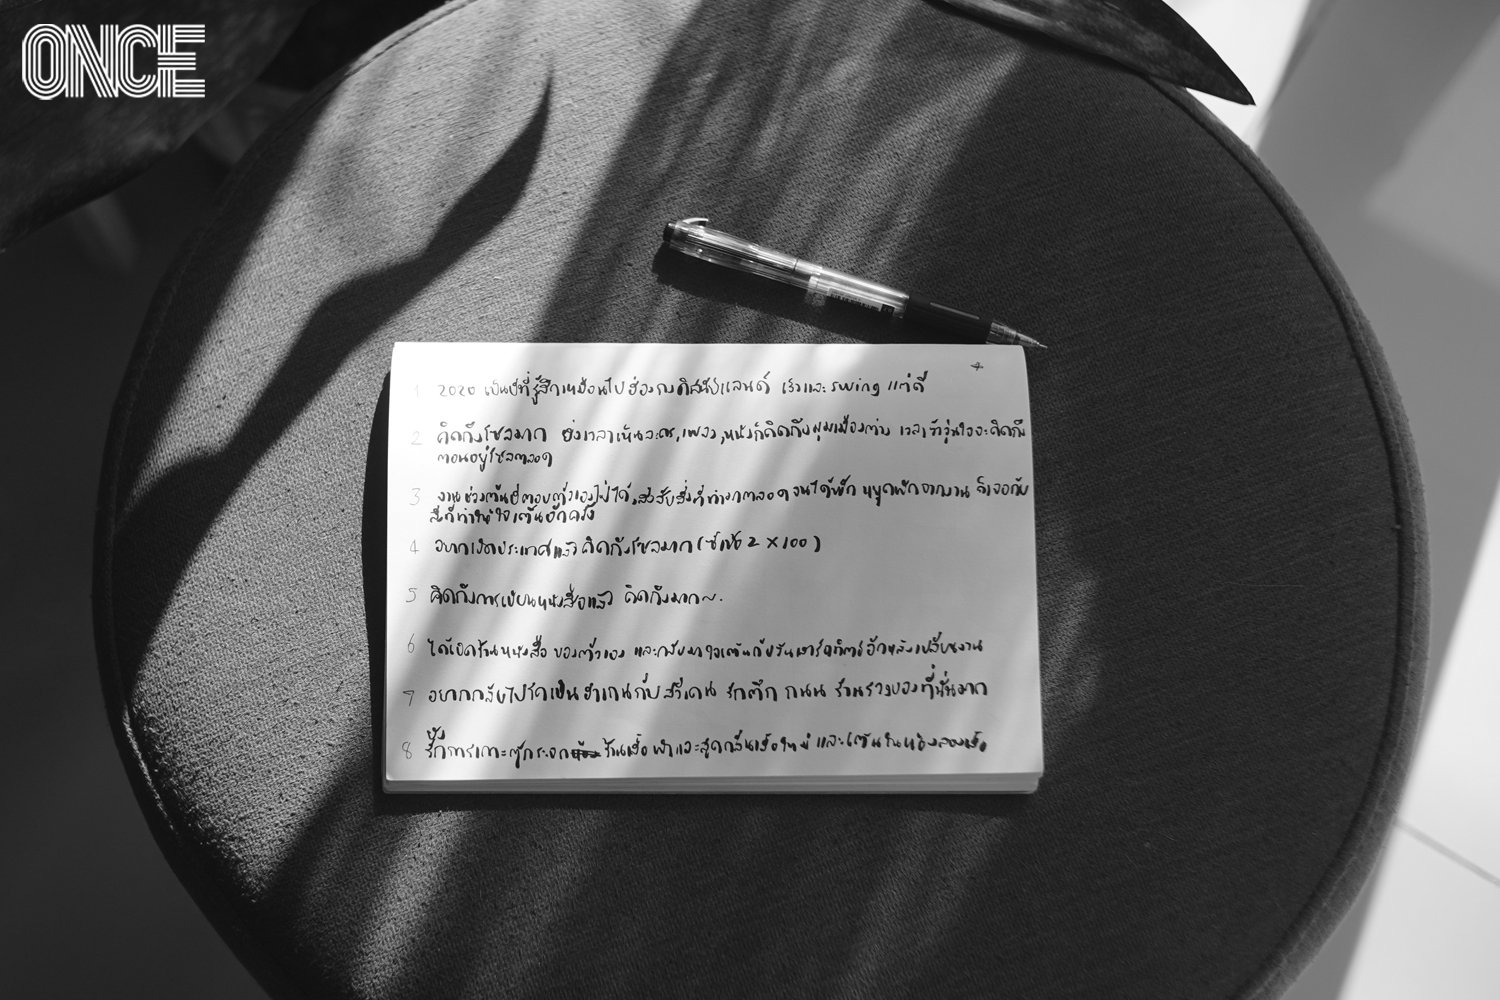 ONCE
1 2020 เป็นปีที่รู้สึกเหมือนไปฮ่องกงดิสนีย์แลนด์ เร็วและ swing แต่ดี
2 คิดถึงโซลมาก ช่วงเวลาเห็นละคร, เพลง, หนังก็คิดถึงมุมเมืองต่าง เวลาว้าวุ่นใจจะคิดถึง
ตอนอยู่โซลตลอด
3 งานช่วงต้นปีตอบตัวเองไม่ได้, สงสัยสิ่งที่ทำมาตลอด จนได้พัก หยุดพักจากงาน ก็เจอกับ
สิ่งที่ทำให้ใจเต้นอีกครั้ง
4 อยากเปิดประเทศแล้ว คิดถึงโซลมาก (ซ้ำข้อ 2 × 100)
5 คิดถึงการเขียนหนังสือแล้ว คิดถึงมาก~.
6 ได้เปิดร้านหนังสือ ของตัวเอง และกลับมาใจเต้นกับวันเสาร์อาทิตย์อีกหลังเปลี่ยนงาน
7 อยากกลับไปรัก ตึก ถนน ร้านรวงของที่นั่นมาก
8 ยังรักการเคาะ ร้านเสื้อผ้าและสูดกลิ่นเสื้อใหม่ และเต้นในห้องลองเสื้อ